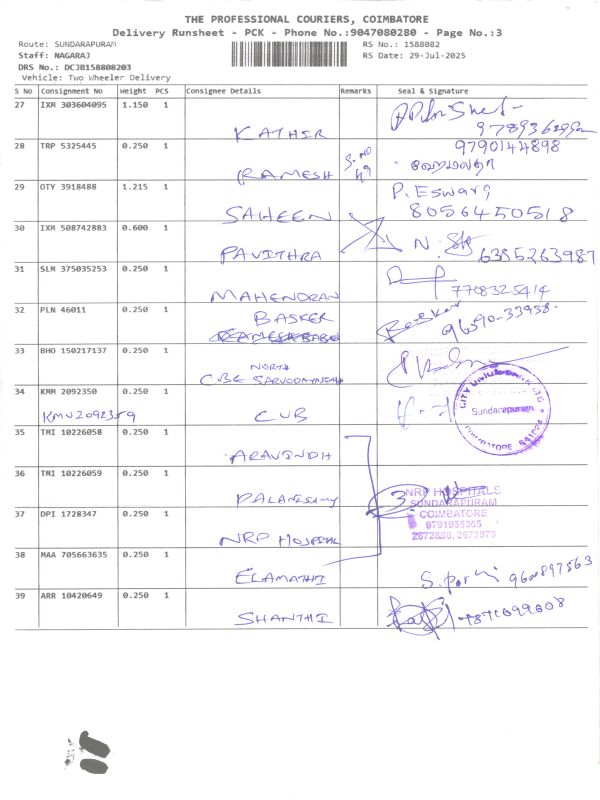 THE PROFESSIONAL COURIERS, COIMBATORE
Delivery Runsheet - PCK - Phone No.:9047080280 - Page No.:3
Route: SUNDARAPURAM
RS No.: 1588082
Staff: NAGARAJ
RS Date: 29-Jul-2025
DRS No.: DCJB158808203
Vehicle: Two Wheeler Delivery
S No Consignment No Weight PCS Consignee Details Remarks Seal & Signature
27 IXM 303604095 1.150 1
KATHIR
28 TRP 5325445 0.250 1 9790144898
RAMESH S.no 49
29 OTY 3918488 1.215 1 P. Eswari
SAHEEN 8056450518
30 IXM 508742883 0.600 1
PAVITHRA 6385263987
31 SLM 375035253 0.250 1
MAHENDRAN 7708325414
32 PLN 46011 0.250 1 BASKER
Basker 96590-33938
33 BHO 150217137 0.250 1 NORTH
CBE SARVODAYA
34 KMM 2092350 0.250 1
KMU2092359 CUB
CITY UNION BANK LTD
Sundarapuram
COIMBATORE 641024
35 TMI 10226058 0.250 1
ARAVINDH
36 TMI 10226059 0.250 1
PALANISAMY
3
NRP HOSPITALS
SUNDARAPURAM
COIMBATORE
9791955365
2672838, 2673979
37 DPI 1728347 0.250 1
NRP HOSPITAL
38 MAA 705663635 0.250 1
ELAMATHI 9600897563
39 ARR 10420649 0.250 1
SHANTHI